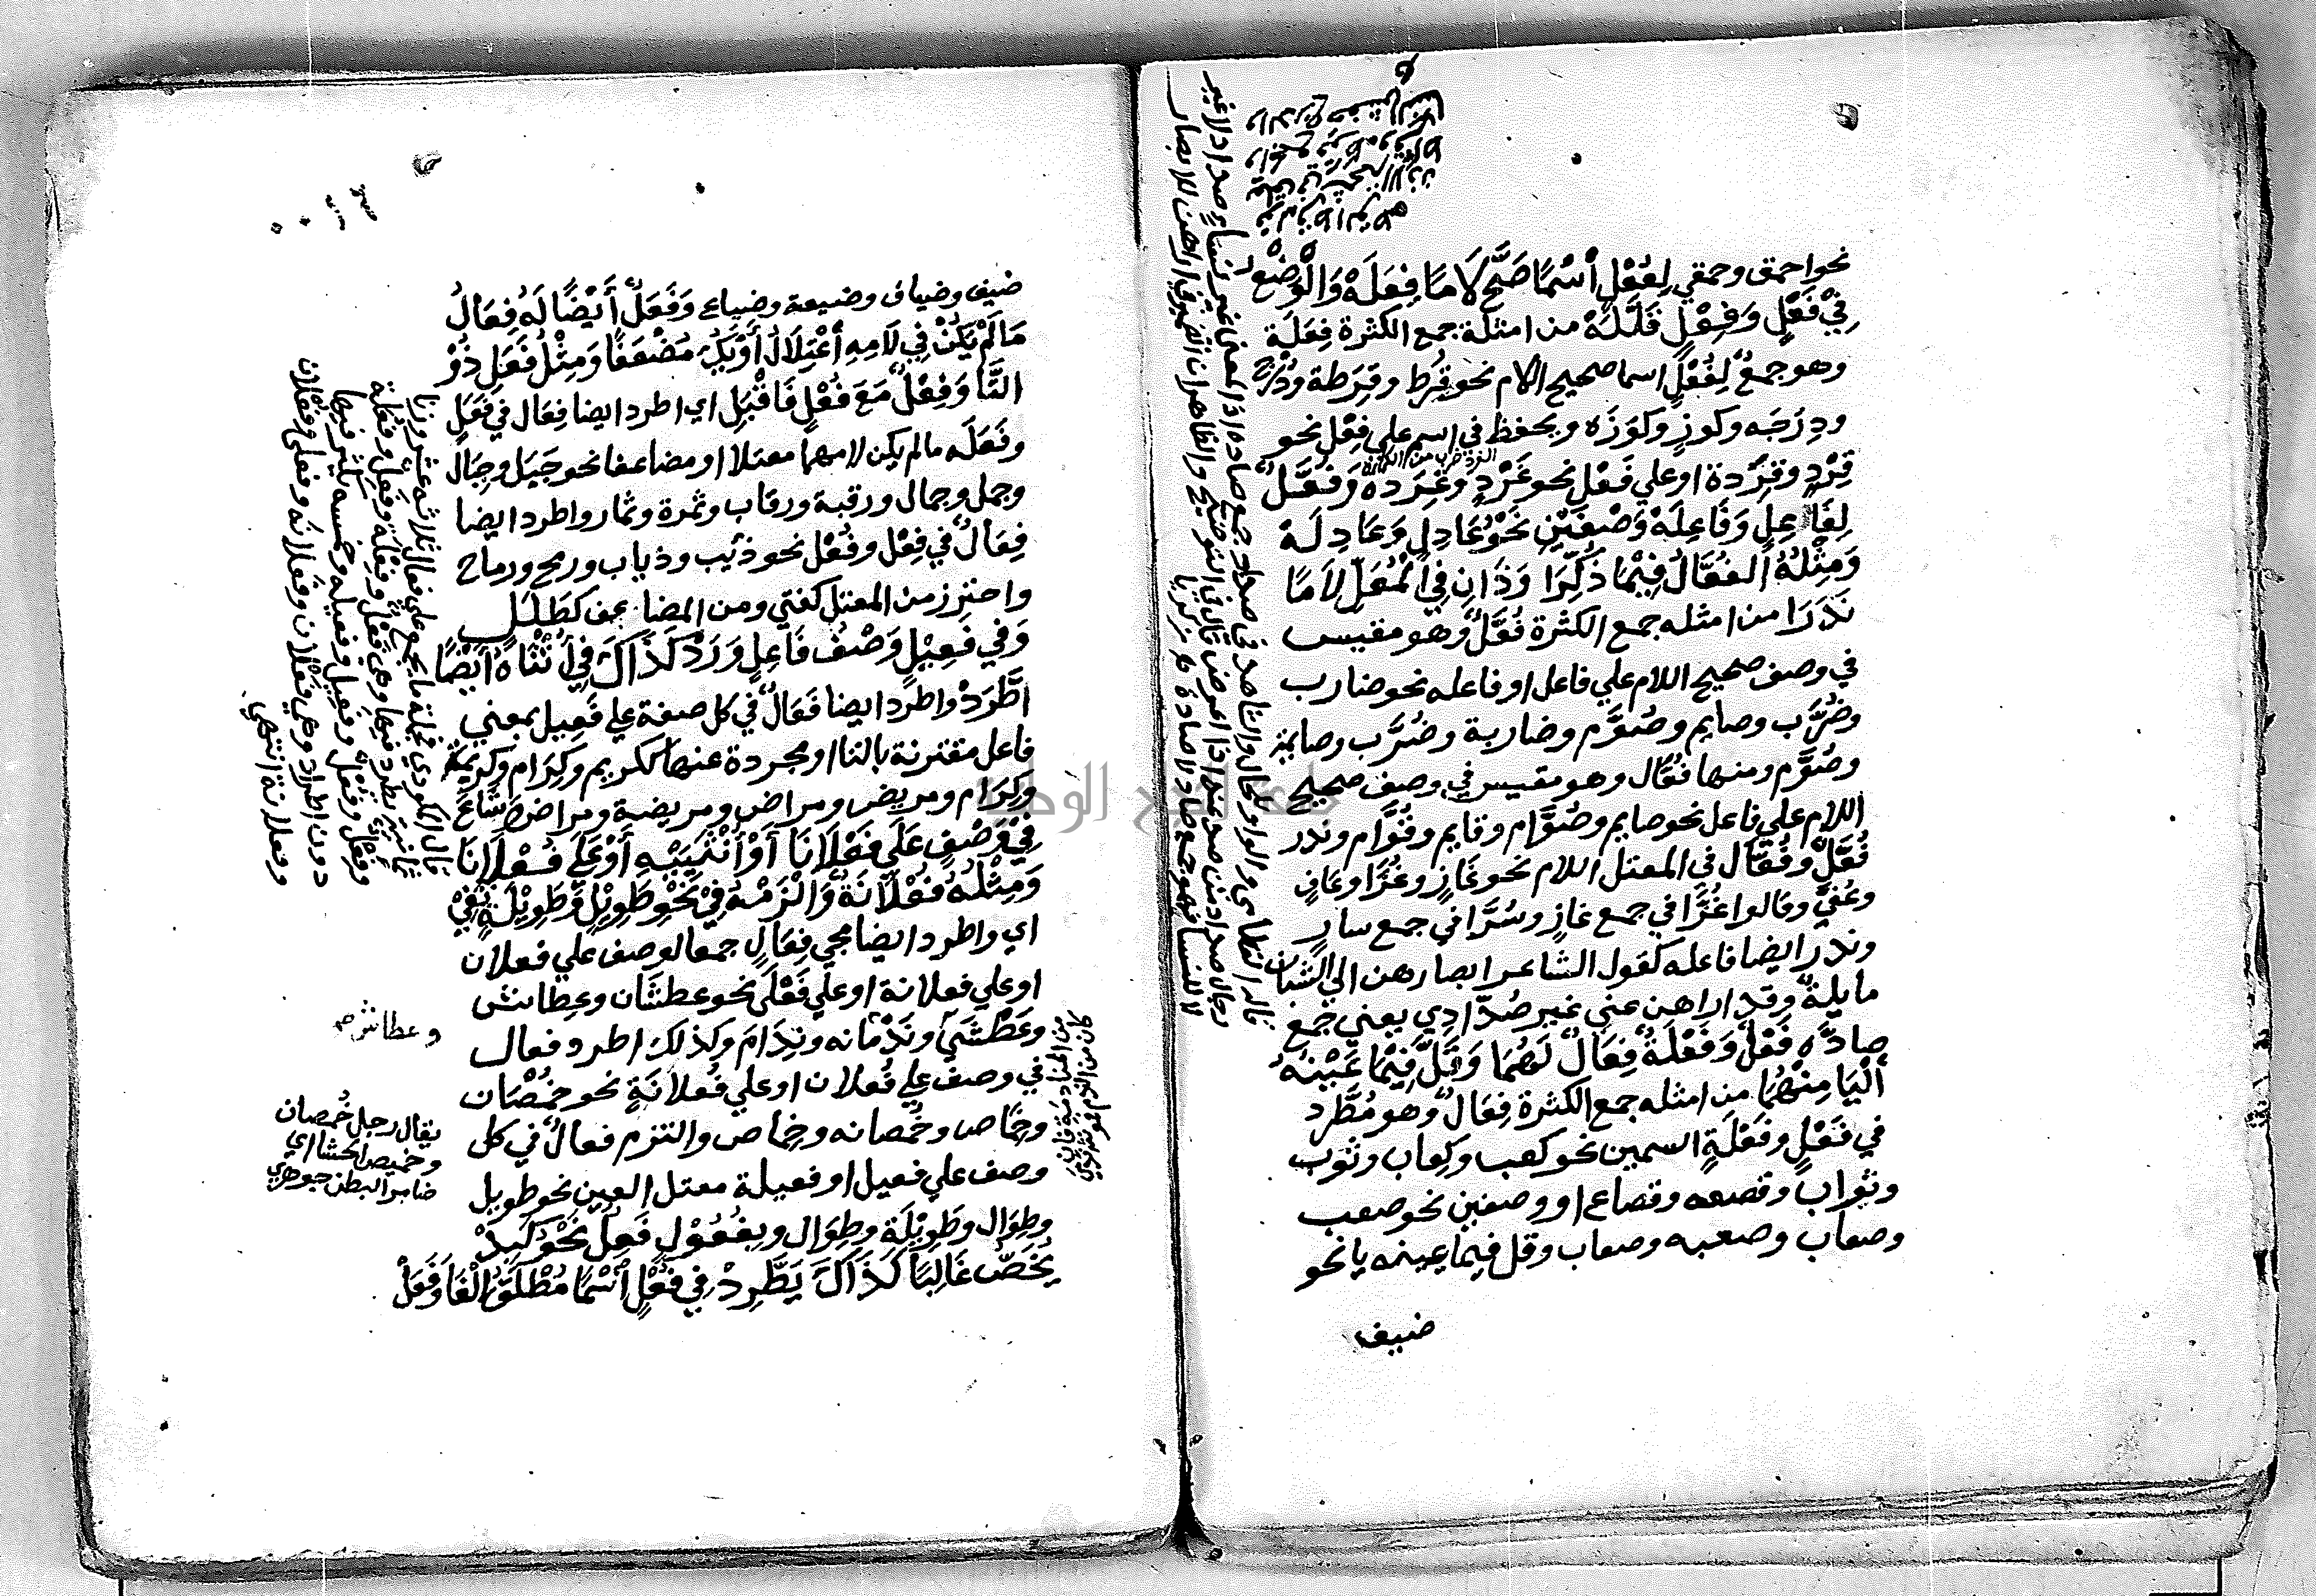 نحو احمق وحمقي لِفُعْلٍ أسْمًا صَحَّ لَامًا فِعَلَهْ وَالْوَضْعُ
فِيْ فَعْلٍ وَفِعْلٍ قَلَّلَهْ من امثلة جمع الكثرة فِعَلَة
وهو جمعٌ لِفُعْلٍ اسما صحيح اللام نحو قُرط وقِرَطة ودُرْج
ودِرَجَه وكوز وكِوَزَه ويحفظ في اسم علي فِعْل نحو
قِرْدٍ وقِرَدة او علي فَعْلٍ نحو غَرْدٍ وغِرَده وَفُعَّلٌ
لِفَاعِلٍ وَفَاعِلَهْ وَصْفَيْنِ نَحْوُ عَادِلٍ وَعَادِلَهْ
وَمِثْلُهُ الفُعَّالُ فِيْمَا ذُكِّرَا وَذَانِ فِي الْمُعَلِّ لاَمًا
نَدَرَا من امثله جمع الكثرة فُعَّلٌ وهو مقيس
في وصف صحيح اللام علي فاعل او فاعله نحو ضارب
وضُرَّب وصايم وصُوَّم وضاربة وضُرَّب وصايمة
وصُوَّم ومنها فُعَّال وهو مقيس في وصف صحيح
اللام علي فاعل نحو صايم وصُوَّام وقايم وقُوَّام وندر
فُعَّلٌ وفُعَّال في المعتل اللام نحو غازٍ وغُزَّا وعَافٍ
وعُفيًّ وقالوا غُزَّا في جمع غازٍ وسُرَّا في جمع سارٍ
وندر ايضا فاعله كقول الشاعر ابصارهن الي الشبان
مايلةٌ وقد اراهن عني غير صُدَّادِي يعني جمع
صادَّه فَعْلٌ وَفَعْلَةٌ فِعَالٌ لَهُمَا وَقَلَّ فِيْمَا عَيْنُهُ
أليَا مِنْهُمَا من امثله جمع الكثرة فِعَالٌ وهو مُطَّرد
في فَعْلٍ وفَعْلَةٍ اسمين نحو كعب وكِعاب وثوب
وثواب وقصعه وقصاع او وصفين نحو صعب
وصعاب وصعبه وصعاب وقل فيما عينه يا نحو
ضيف
ضيف وضياف وضيعة وضياع وَفَعَلٌ أَيْضًا لَهُ فِعَالُ
مَالَمْ يَكُنْ فِي لَامِهِ أعْتِلَالُ أَوْ يَكُ مُضْعَفًا وَمِثْلُ فَعَلِ ذُوْ
التَّا وَفِعْلٌ مَعَ فُعْلٍ فَاقْبَلِ اي اطرد ايضا فِعَال في فَعَلٍ
وفَعَلَه مالم يكن لامهما معتلا او مضاعفا نحو جَبَل وجِبَال
وجمل وجمال ورقبة ورقاب وثمرة وثمار واطرد ايضا
فِعَالٌ في فِعْل وفُعْل نحو ذئب وذياب ورمح ورماح
واحترز من المعتل كفتي ومن المضاعف كطَلَل
وَفي فَعِيْلٍ وَصْفُ فَاعِلٍ وَرَدْ كَذَاكَ فِي أُنْثَاهُ أَيْضًا
اطَّرَدْ واطرد ايضا فِعَالٌ في كل صفة علي فَعِيل بمعني
فاعل مقترنة بالتا او مجردة عنها ككريم وكِرَام وكريمة
وكِرَام ومريض ومراض ومريضة ومراض وشَاعَ
فِي وَصْفٍ عَلَى فَعْلَانَا أَوْ أُنْثَيَيْهِ أَوْ عَلَى فُعْلَانَا
وَمِثْلُهُ فُعْلَانَةٌ وَالْزَمْهُ فِيْ نَحْوِ طَوِيْلٍ وَطَوِيْلَةٍ تَفِيْ
اي واطرد ايضا مجي فِعَالٍ جمعا لوصف علي فعلان
او علي فعلانة او علي فَعْلَى نحو عطشَان وعِطاش
وعَطْشَى ونَدْمَانه ونِدَام وكذلك اطرد فعال
في وصف علي فُعلان او علي فُعلانَةٍ نحو خُمْصَان
وخِمَاص وخُمصانه وخِمَاص والتزم فعالٌ في كل
وصف علي فعيل او فعيلة معتل العين نحو طويل
وطِوَال وطَوِيْلَة وطِوَال وبِفُعُوْلٍ فَعِلٌ نَحْوُ كَبِدْ
يُخَصُّ غَالِبًا كَذَاكَ يَطَّرِدْ فِي فَعْلٍ أسْمًا مُطْلَقَ الْفَا وَفَعَلْ
وعطاش صح
يقال رجل خُمصان
وخميص الحشا اي
ضامر البطن جوهري